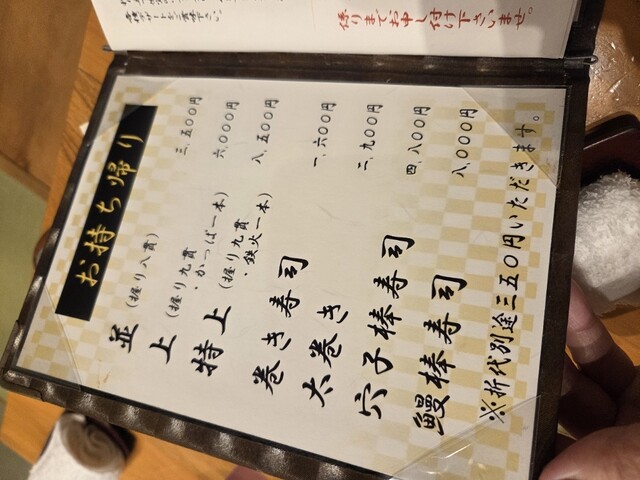 係りまでお申し付け下さいませ。
お持ち帰り
並(握り八貫) 三、五〇〇円
上(握り九貫・かっぱ一本) 六、〇〇〇円
特上(握り九貫・鉄火一本) 八、五〇〇円
巻き寿司 一、六〇〇円
太巻き 二、九〇〇円
穴子棒寿司 四、八〇〇円
鰻棒寿司 八、〇〇〇円
※折代別途三五〇円いただきます。